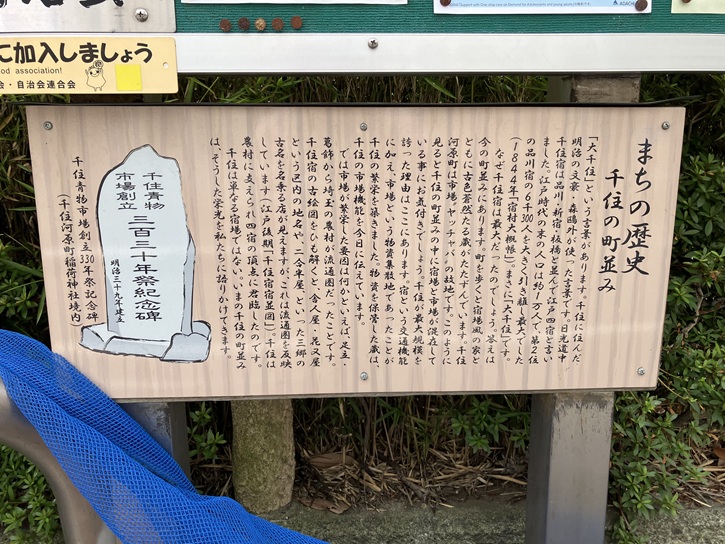 に加入しましょう
od association!
会・自治会連合会
まちの歴史
千住の町並み
「大千住」という言葉があります。千住に住んだ
明治の文豪・森鴎外が使った言葉です。日光道中
千住宿は品川・新宿・板橋と並んで江戸四宿と言い
ました。江戸時代の末の人口は約1万人で、第2位
の品川宿の6千300人を大きく引き離し最大でした
(1844年・宿村大概帳)。まさに「大千住」です。
なぜ千住宿は最大だったのでしょう。答えは
今の町並みにあります。町を歩くと宿場風の家と
ともに古色蒼然たる蔵がたたずんでいます。千住
河原町は市場・ヤッチャバの故地です。このように
見ると千住の町並みの中に宿場と市場が混在して
いる事にお気付きでしょう。千住が最大規模を
誇った理由はここにあります。宿という交通機能
に加え、市場という物資集散地であったことが
千住の繁栄を築きました。物資を保管した蔵は、
千住の市場機能を今日に伝えています。
では市場が繁栄した要因は何かといえば、足立・
葛飾から埼玉の農村が流通圏だったことです。
千住宿の古絵図をひも解くと、舎人屋、花又屋
という区内の地名や、二合半屋、といった三郷の
古名を名乗る店が見えますが、これは流通圏を反映
しています(江戸後期「千住宿宿並図」)。千住は
農村に支えられ四宿の頂点に君臨したのです。
千住は単なる宿場ではない。いまの千住の町並み
は、そうした栄光を私たちに語りかけてきます。
千住青物
市場創立
三百三十年祭紀念碑
明治三十九年建立
千住青物市場創立330年祭記念碑
(千住河原町稲荷神社境内)